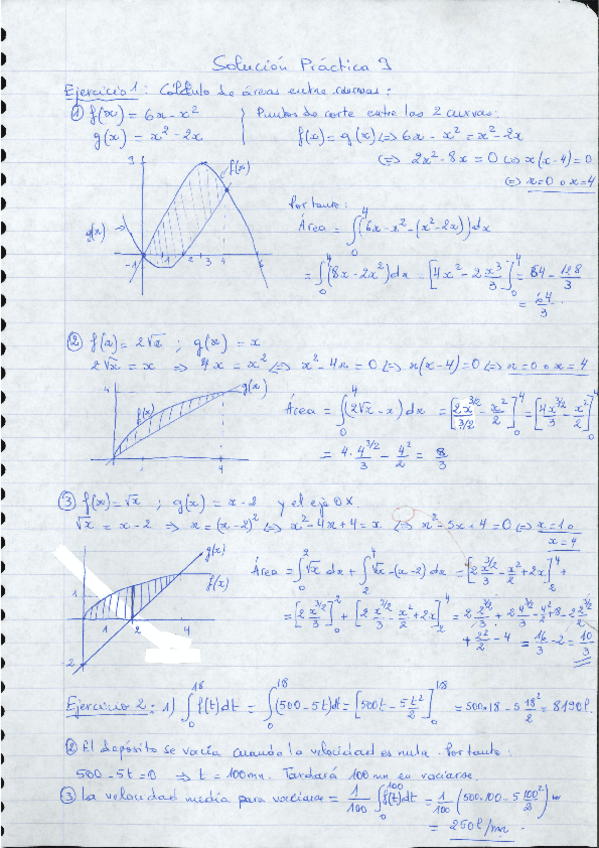 Solución Práctica 9
Ejercicio 1: Cálculo de áreas entre curvas:
① f(x) = 6x - x² } Puntos de corte entre las 2 curvas:
g(x) = x² - 2x f(x) = g(x) ⇔ 6x - x² = x² - 2x
⇔ 2x² - 8x = 0 ⇔ x(x-4) = 0
⇔ x=0 o x=4
Por tanto:
Área = ∫₀⁴ (6x - x² - (x² - 2x)) dx
= ∫₀⁴ (8x - 2x²) dx = [4x² - 2x³/3]₀⁴ = 64 - 128/3
= 64/3
f(x)
g(x)
-1 1 2 3 4 6
② f(x) = 2√x ; g(x) = x
2√x = x ⇒ 4x = x² ⇔ x² - 4x = 0 ⇔ x(x-4) = 0 ⇔ x=0 o x=4
4 g(x)
f(x)
1 4
Área = ∫₀⁴ (2√x - x) dx = [2x^{3/2}/(3/2) - x²/2]₀⁴ = [4x^{3/2}/3 - x²/2]₀⁴
= 4·4^{3/2}/3 - 4²/2 = 8/3
③ f(x) = √x ; g(x) = x-2 y el eje OX.
√x = x-2 ⇒ x = (x-2)² ⇔ x² - 4x + 4 = x ⇔ x² - 5x + 4 = 0 ⇔ x=1 o
x=4
g(x)
f(x)
1
1 2 4
-2
Área = ∫₀² √x dx + ∫₂⁴ √x - (x-2) dx = [2 x^{3/2}/3 - x²/2 + 2x]₂⁴ +
= [2 x^{3/2}/3]₀² + [2 x^{3/2}/3 - x²/2 + 2x]₂⁴ = 2 2^{3/2}/3 + 2 4^{3/2}/3 - 4²/2 + 8 - 2 2^{3/2}/3
+ 2²/2 - 4 = 16/3 - 2 = 10/3
Ejercicio 2: 1) ∫₀¹⁸ f(t) dt = ∫₀¹⁸ (500 - 5t) dt = [500t - 5 t²/2]₀¹⁸ = 500·18 - 5 18²/2 = 8190 l.
② El depósito se vacía cuando la velocidad es nula. Por tanto:
500 - 5t = 0 ⇒ t = 100 mn. Tardará 100 mn en vaciarse.
③ La velocidad media para vaciarse = 1/100 ∫₀¹⁰⁰ f(t) dt = 1/100 (500·100 - 5 100²/2)
= 250 l/mn.